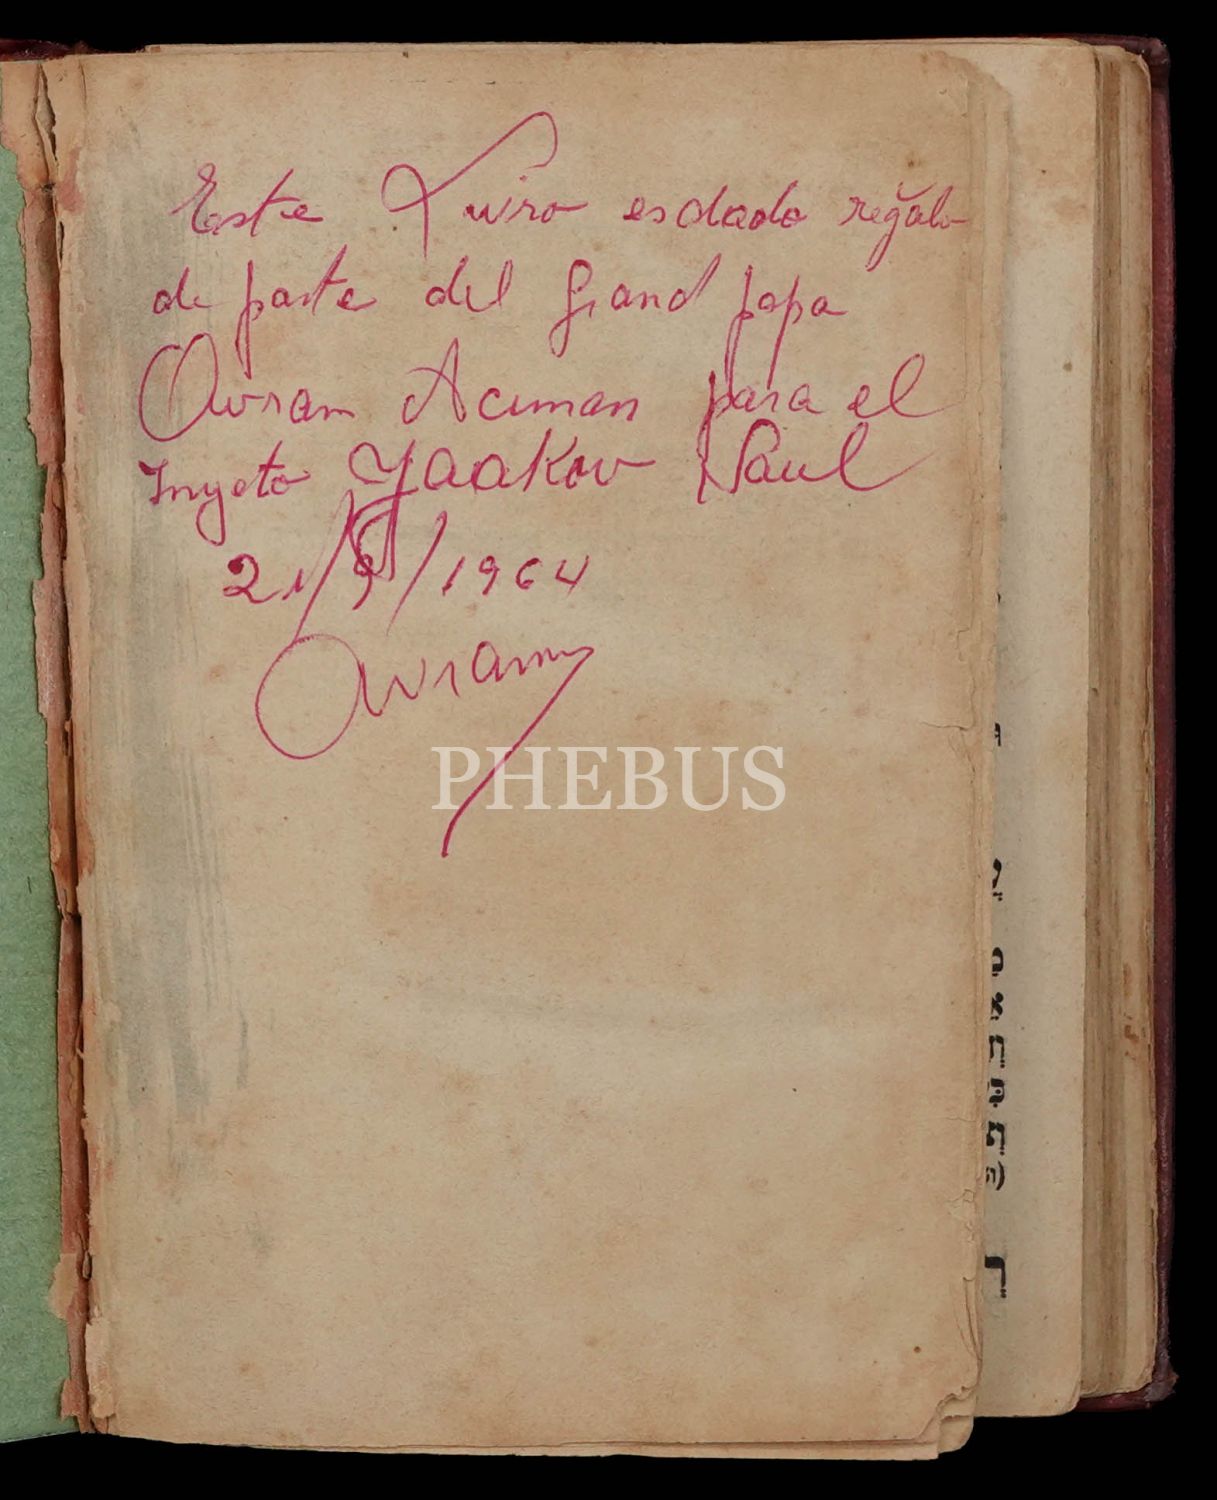 Este Livro es dado regǎlo
de parte del Grand papa
Avram Aciman para el
Inyeto Yaakov Saul
21/9/1964
Avram
PHEBUS